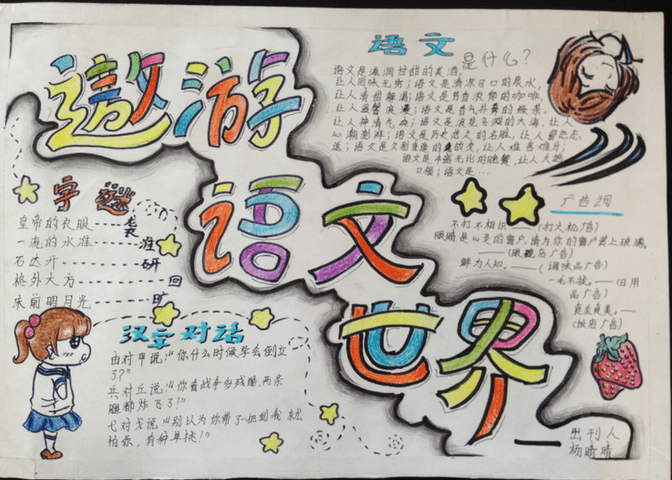 遨游
语文
世界
语文是什么?
语文是滴润甘甜的美酒,
让人回味无穷;语文是清凉可口的泉水,
让人清甜解渴;语文是芳香浓郁的咖啡,
让人
语文是
让人神清气爽;语文是波
的大海,让人
心潮澎湃;语文是历史悠久的名胜,让人留恋忘
返;语文是
让人难舍难分;
语文是丰盛无比的晚餐,让人大饱
口福;语文是…
字谜
皇帝的衣服 袭
一池的水准 淮
石达开 研
格外大方 回
床前明月光 旷
汉字对话
由对甲说:“你什么时候学会倒立
了?”
兵对丘说:“你看战争多残酷,两条
腿都炸飞了!”
弋对戈说:“别以为你带了一把刀我就
怕你,有种单挑!”
广告词
不打不相识——(打火机广告)
眼睛是心灵的窗户,请为你的窗户装上玻璃。
(眼镜店广告)
鲜为人知。——(调味品广告)
一毛不拔。——(日用
品广告)
(饮料广告)
出刊人
杨晴晴